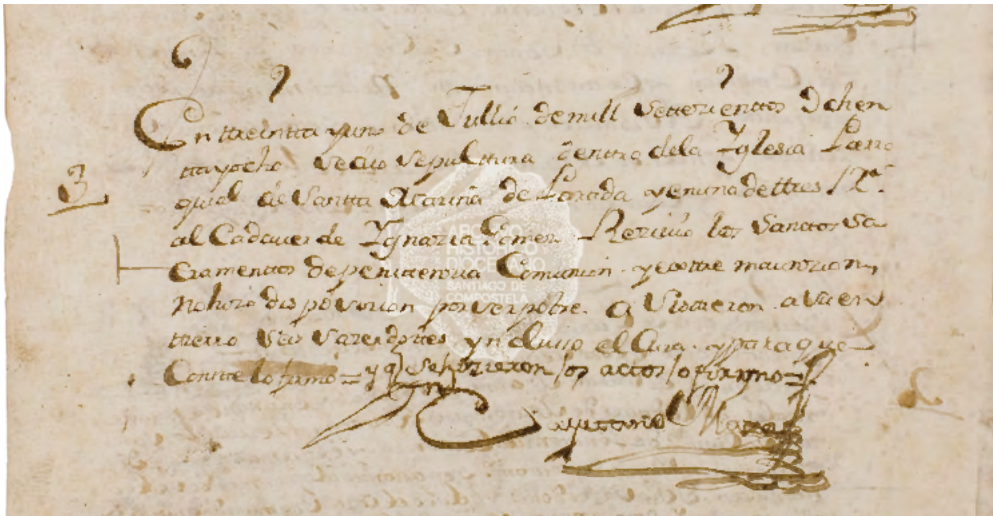 En treintta y uno de Jullio de mill settezienttos ochen
tta y ocho se dio sepulttura dentro de la Yglesia Parro
3
quial de Santta Marina de y en una de ttres R.ˢ
al Cadauer de Ygnazia Gomez Reziuio los Santtos Sa
cramenttos de penitenzia Comunion y extre maunzion,
no hizo disposizion por ser pobre. asistieron a su en
tierro seis sazerdottes ynclusso el Cura y para que
Conste lo firmo = y q̃ se hizieron los actos lo firmo =
ARCHIVO
HISTÓRICO
DIOCESANO
SANTIAGO DE
COMPOSTELA